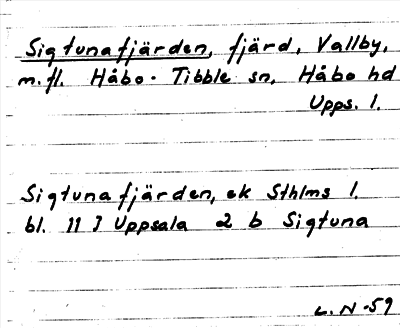 Sigtunafjärden, fjärd, Vallby,
m.fl. Håbo-Tibble sn, Håbo hd
Upps. l.
Sigtunafjärden, ek Sthlms l.
bl. 11 I Uppsala 2 b Sigtuna
L.N-59